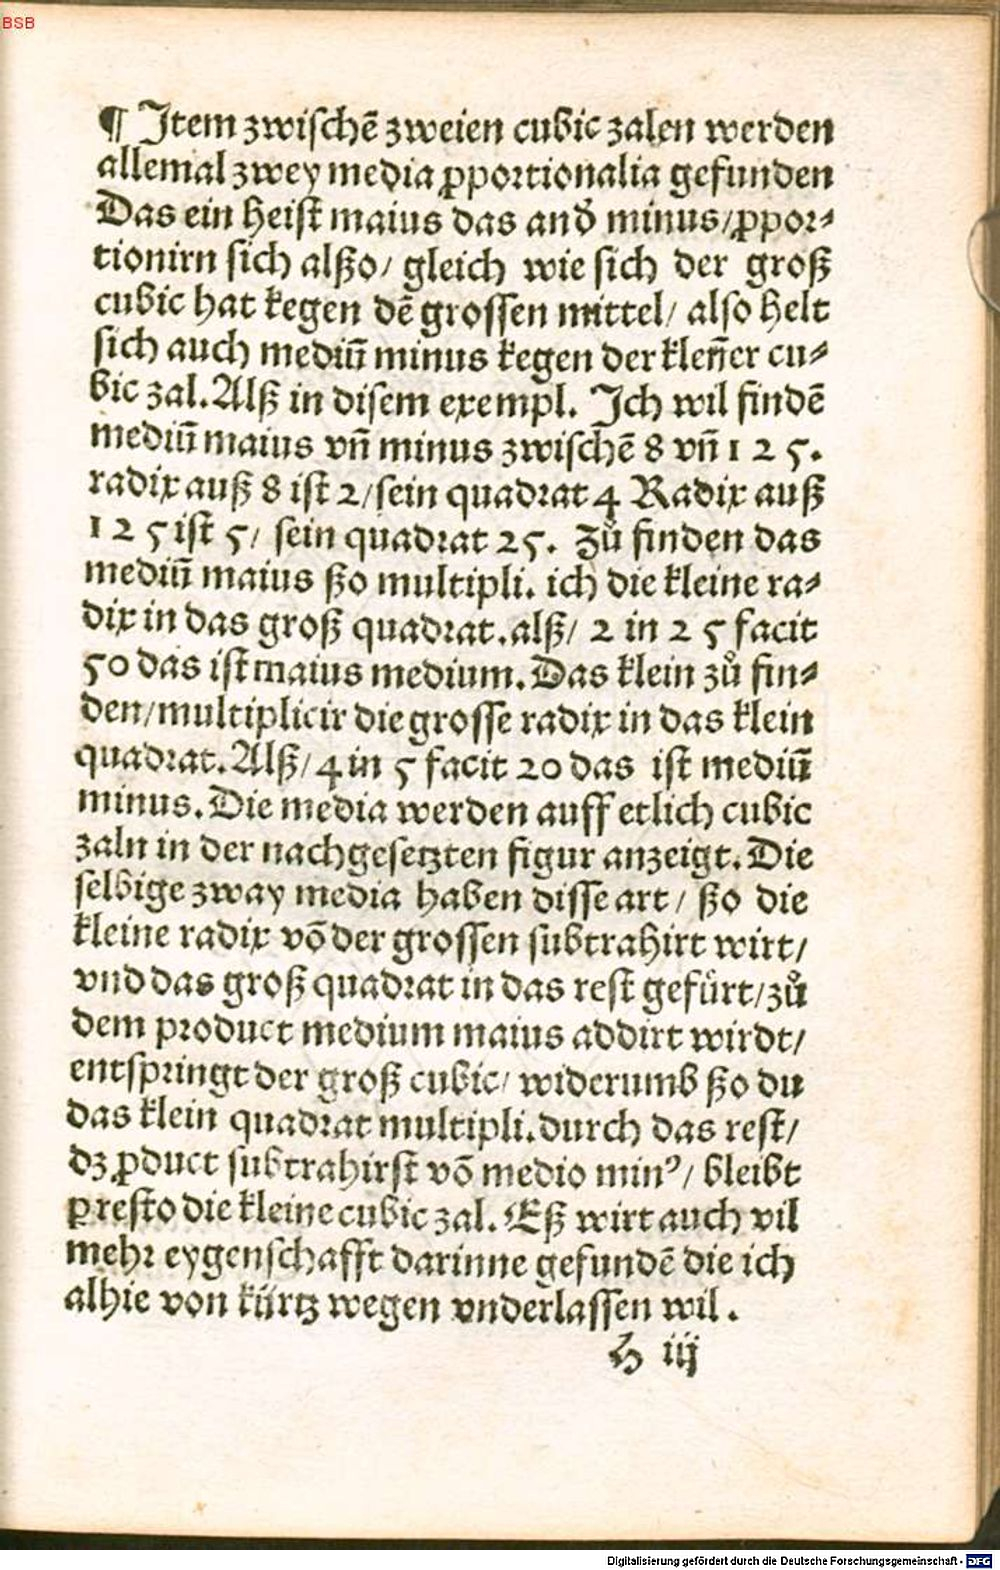 BSB
¶ Item zwischē zweien cubic zalen werden
allemal zwey media ꝓportionalia gefunden
Das ein heist maius das and̕ minus/ꝓpor⸗
tionirn sich alßo/ gleich wie sich der groß
cubic hat kegen dē grossen mittel/ also helt
sich auch mediū minus kegen der kleñer cu⸗
bic zal. Alß in disem exempl. Ich wil findē
mediū maius vñ minus zwischē 8 vñ 1 2 5.
radix auß 8 ist 2/sein quadrat 4 Radix auß
1 2 5 ist 5/ sein quadrat 25. Zů finden das
mediū maius ßo multipli. ich die kleine ra⸗
dix in das groß quadrat. alß/ 2 in 2 5 facit
50 das ist maius medium. Das klein zů fin⸗
den/multiplicir die grosse radix in das klein
quadrat. Alß/ 4 in 5 facit 20 das ist mediū
minus. Die media werden auff etlich cubic
zaln in der nachgesetzten figur anzeigt. Die
selbige zway media haben disse art/ ßo die
kleine radix vō der grossen subtrahirt wirt/
vnd das groß quadrat in das rest gefürt/zů
dem product medium maius addirt wirdt/
entspringt der groß cubic/ widerumb ßo du
das klein quadrat multipli. durch das rest/
dz ꝓduct subtrahirst vō medio minꝰ/ bleibt
ꝑ resto die kleine cubic zal. Eß wirt auch vil
mehr eygenschafft darinne gefundē die ich
alhie von kürtz wegen vnderlassen wil.
h iij
Digitalisierung gefördert durch die Deutsche Forschungsgemeinschaft - DFG